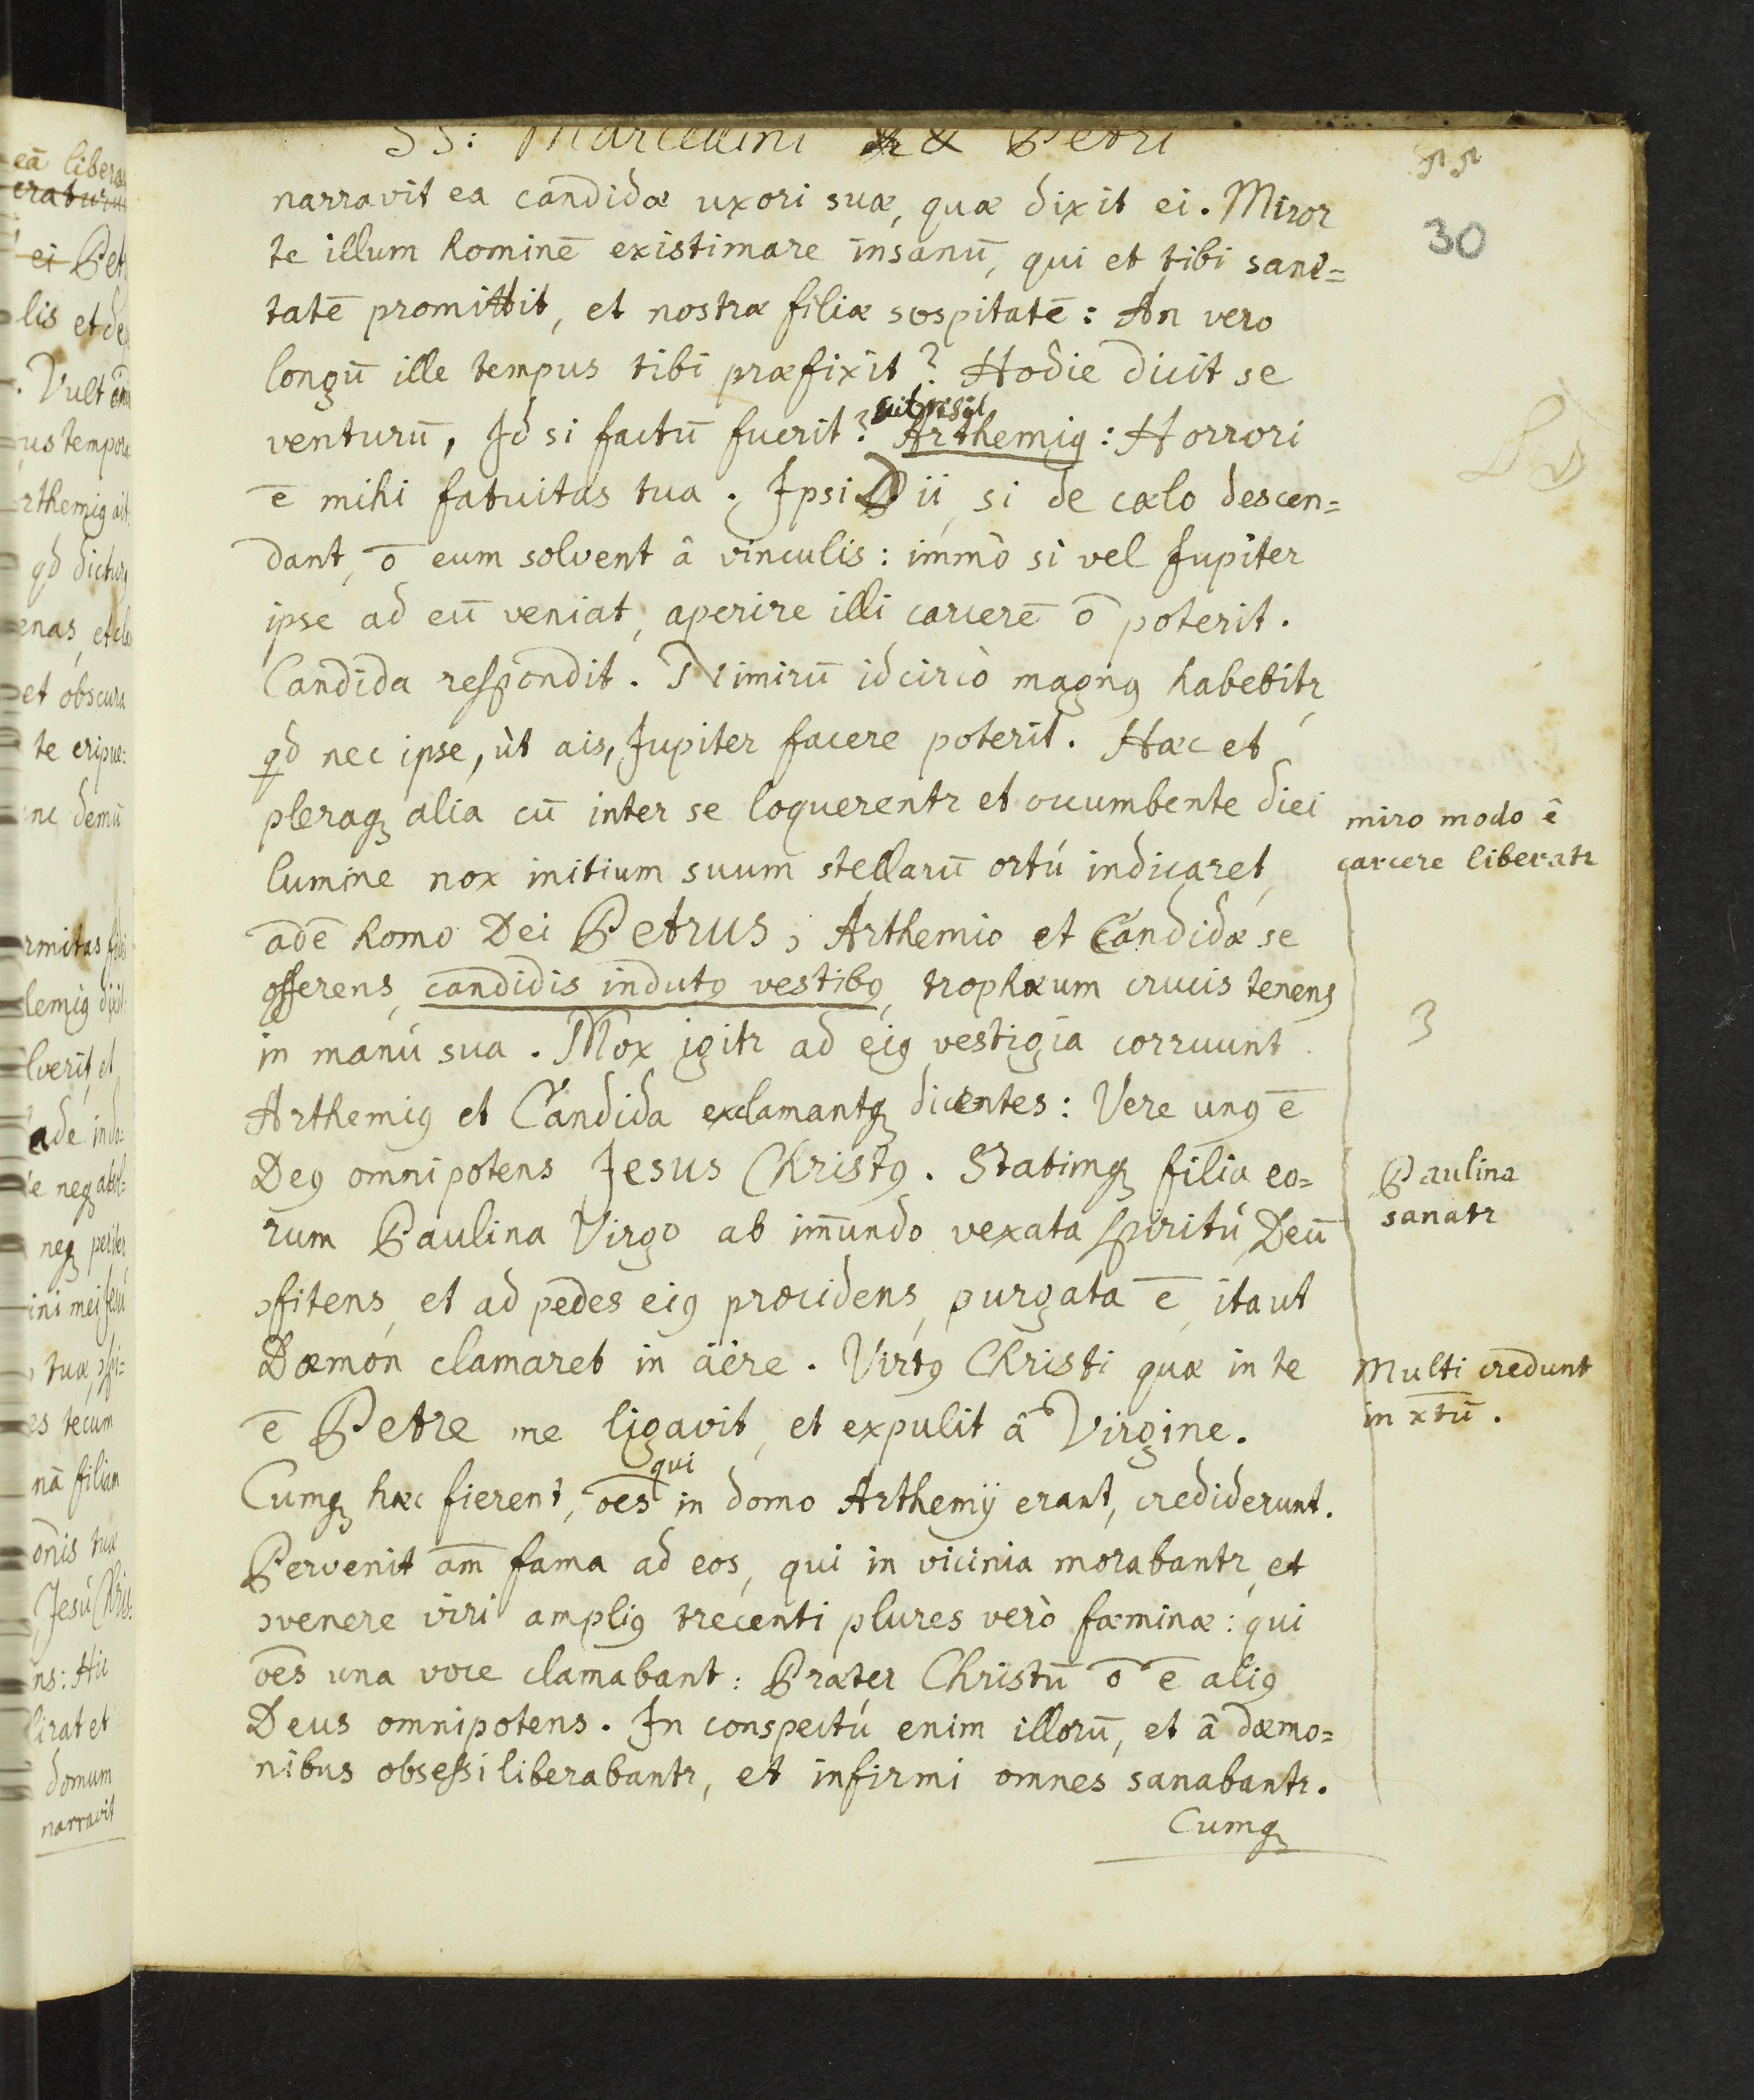 SS: Marcellini & Petri
55
30
narravit ea candidæ uxori suæ, quæ dixit ei. Miror
te illum hominē existimare insanū, qui et tibi sani=
tatē promittit, et nostræ filiæ sospitatē: An vero
longū ille tempus tibi præfixit? Hodie dicit se
venturū, Id si factū fuerit? Arthemiꝰ: Horrori
ē mihi fatuitas tua. Ipsi Dii, si de cælo descen=
dant, ō eum solvent â vinculis: immò si vel Jupiter
ipse ad eū veniat, aperire illi carcerē ō poterit.
Candida respondit. Nimirū idcircò magnꝰ habebitr,
qd nec ipse, ùt ais, Jupiter facere poterit. Hæc et
pleraqꝫ alia cū inter se loquerentr et occumbente diei
lumine nox initium suum stellarū ortú indicaret,
adē homo Dei Petrus, Arthemio et Candidæ se
offerens, candidis indutꝰ vestibꝰ, trophæum crucis tenens
in manú sua. Mox igitr ad eiꝰ vestigia corruunt
Arthemiꝰ et Candida exclamantqꝫ dicentes: Vere unꝰ ē
Deꝰ omnipotens Jesus Christꝰ. Statimqꝫ filia eo=
rum Paulina Virgo ab im̄undo vexata spiritú, Deū
ↄfitens, et ad pedes eiꝰ procidens, purgata ē, itaut
Dæmon clamaret in äére. Virtꝰ Christi quæ in te
ē Petre me ligavit, et expulit â Virgine.
Cumqꝫ hæc fierent, oēs qui in domo Arthemÿ erant, crediderunt.
Pervenit am̄ fama ad eos, qui in vicinia morabantr, et
ↄvenere viri ampliꝰ trecenti plures verò fæminæ: qui
oēs una voce clamabant: Præter Christū ō ē aliꝰ
Deus omnipotens. In conspectú enim illorū, et â dæmo=
nibus obsessi liberabantr, et infirmi omnes sanabantr.
Cumqꝫ
miro modo ê
carcere liberatr
3
Paulina
sanatr
Multi credunt
in xtū.